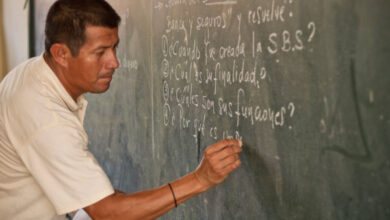 Banca y seguros" y resuelve:
① ¿Cuándo fue creada la S.B.S?
② ¿Cuál es su finalidad?
③ ¿Cuáles son sus funciones?
④ ¿Por qué es im